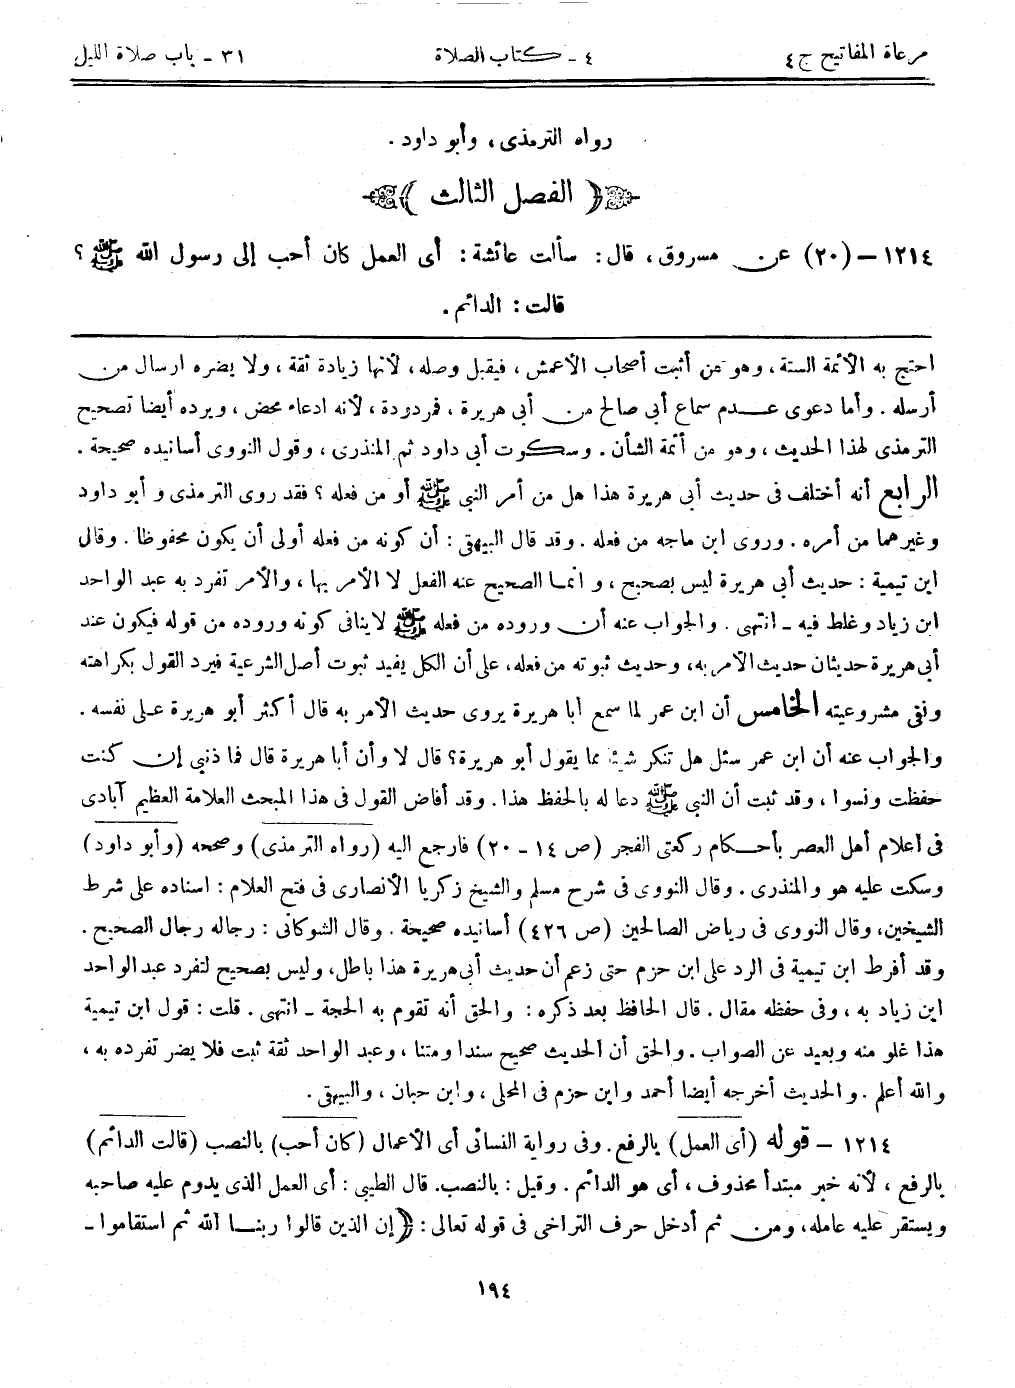 مرعاة المفاتيح ج ٤
٤ - كتاب الصلاة
٣١ - باب صلاة الليل
رواه الترمذى، وأبو داود .
﴿ الفصل الثالث ﴾
١٢١٤ – (٢٠) عن مسروق، قال: سألت عائشة: أى العمل كان أحب إلى رسول الله ﷺ ؟
قالت: الدائم .
احتج به الأئمة الستة، وهو من أثبت أصحاب الأعمش، فيقبل وصله، لأنها زيادة ثقة، ولا يضره ارسال من
أرسله . وأما دعوى عدم سماع أبى صالح من أبى هريرة، فمردودة، لأنه ادعاء محض، ويرده أيضا تصحيح
الترمذى لهذا الحديث، وهو من أئمة الشأن . وسكوت أبى داود ثم المنذرى، وقول النووى أسانيده صحيحة .
الرابع أنه أختلف فى حديث أبى هريرة هذا هل من أمر النبى ﷺ أو من فعله ؟ فقد روى الترمذى و أبو داود
وغيرهما من أمره . وروى ابن ماجه من فعله . وقد قال البيهقى : أن كونه من فعله أولى أن يكون محفوظا . وقال
ابن تيمية : حديث أبى هريرة ليس بصحيح، و انما الصحيح عنه الفعل لا الأمر بها، والأمر تفرد به عبد الواحد
ابن زياد وغلط فيه – انتهى . والجواب عنه أن وروده من فعله ﷺ لاينافى كونه وروده من قوله فيكون عند
أبى هريرة حديثان حديث الأمر به، وحديث ثبوته من فعله، على أن الكل يفيد ثبوت أصل الشرعية فيرد القول بكراهته
ونفى مشروعيته الخامس أن ابن عمر لما سمع أبا هريرة يروى حديث الأمر به قال أكثر أبو هريرة على نفسه .
والجواب عنه أن ابن عمر سئل هل تنكر شيئا مما يقول أبو هريرة؟ قال لا وأن أبا هريرة قال فما ذنبى إن كنت
حفظت ونسوا، وقد ثبت أن النبى ﷺ دعا له بالحفظ هذا . وقد أفاض القول فى هذا المبحث العلامة العظيم آبادى
فى أعلام أهل العصر بأحكام ركعتى الفجر (ص ١٤ – ٢٠) فارجع اليه (رواه الترمذى) وصححه (وأبو داود)
وسكت عليه هو والمنذرى . وقال النووى فى شرح مسلم والشيخ زكريا الأنصارى فى فتح العلام : اسناده على شرط
الشيخين، وقال النووى فى رياض الصالحين (ص ٤٢٦) أسانيده صحيحة . وقال الشوكانى : رجاله رجال الصحيح .
وقد أفرط ابن تيمية فى الرد على ابن حزم حتى زعم أن حديث أبى هريرة هذا باطل، وليس بصحيح لتفرد عبد الواحد
ابن زياد به، وفى حفظه مقال . قال الحافظ بعد ذكره : والحق أنه تقوم به الحجة – انتهى . قلت : قول ابن تيمية
هذا غلو منه وبعيد عن الصواب . والحق أن الحديث صحيح سندا ومتنا، وعبد الواحد ثقة ثبت فلا يضر تفرده به،
والله أعلم . والحديث أخرجه أيضا أحمد وابن حزم فى المحلى، وابن حبان، والبيهقى .
١٢١٤ – قوله (أى العمل) بالرفع . وفى رواية النسائى أى الأعمال (كان أحب) بالنصب (قالت الدائم)
بالرفع، لأنه خبر مبتدأ محذوف، أى هو الدائم . وقيل : بالنصب . قال الطيبى : أى العمل الذى يدوم عليه صاحبه
ويستقر عليه عامله، ومن ثم أدخل حرف التراخى فى قوله تعالى : ﴿إن الذين قالوا ربنا الله ثم استقاموا –
١٩٤